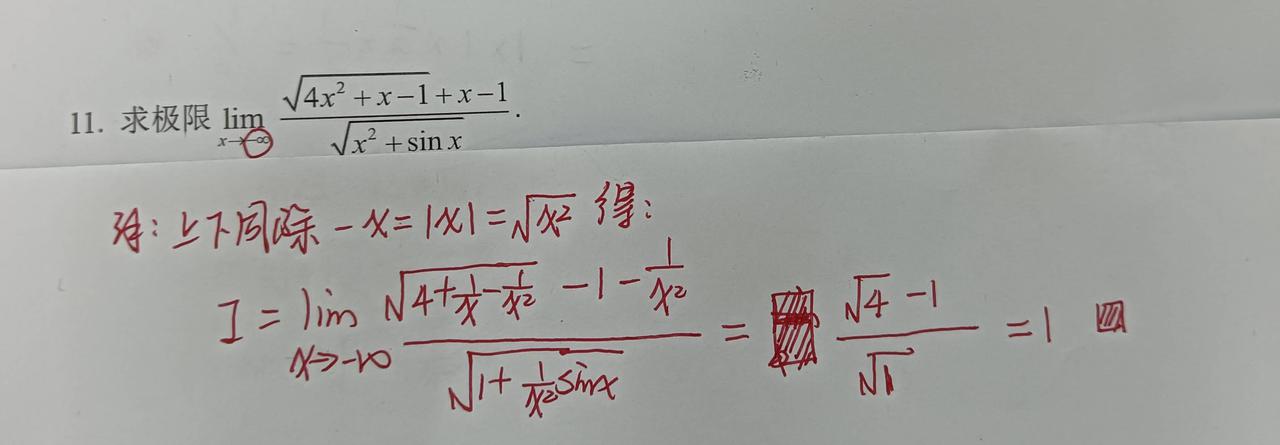 11. 求极限 lim_{x→-∞} \frac{\sqrt{4x^2+x-1}+x-1}{\sqrt{x^2+\sin x}}.
解：上下同除 -x=|x|=\sqrt{x^2} 得：
I = lim_{x→-∞} \frac{\sqrt{4+\frac{1}{x}-\frac{1}{x^2}}-1-\frac{1}{x^2}}{\sqrt{1+\frac{1}{x^2}\sin x}} = \frac{\sqrt{4}-1}{\sqrt{1}} = 1